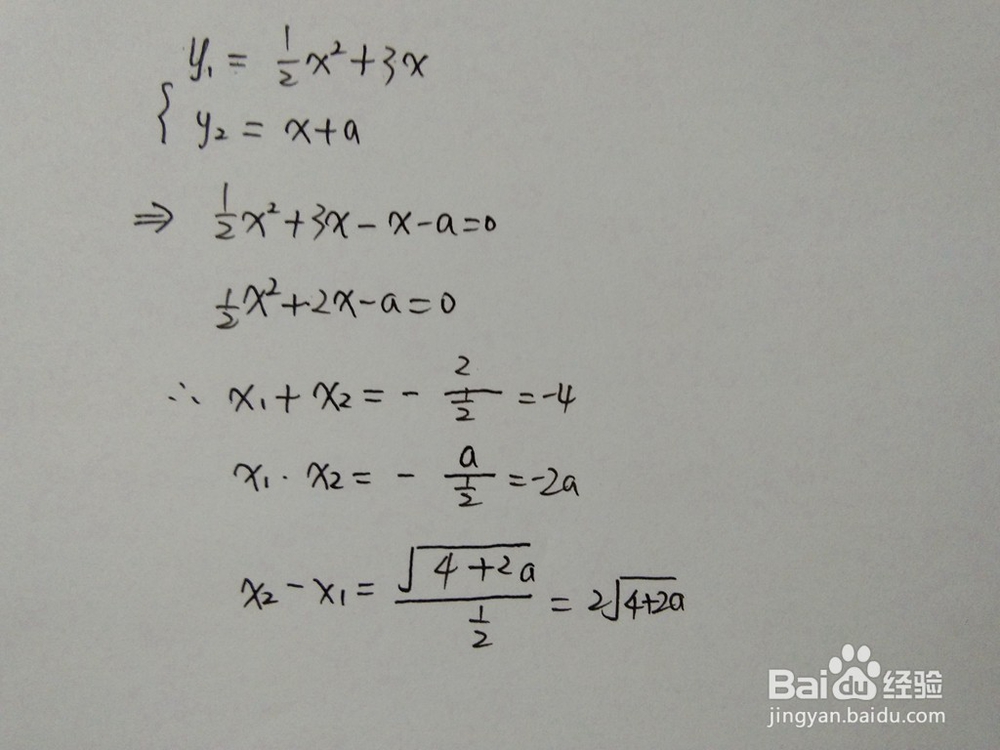 y₁ = ½x² + 3x
{ y₂ = x + a
⇒ ½x² + 3x - x - a = 0
½x² + 2x - a = 0
∴ x₁ + x₂ = - 2/(1/2) = -4
x₁ · x₂ = - a/(1/2) = -2a
x₂ - x₁ = √(4+2a)/(1/2) = 2√(4+2a)
Baidu经验
jingyan.baidu.com